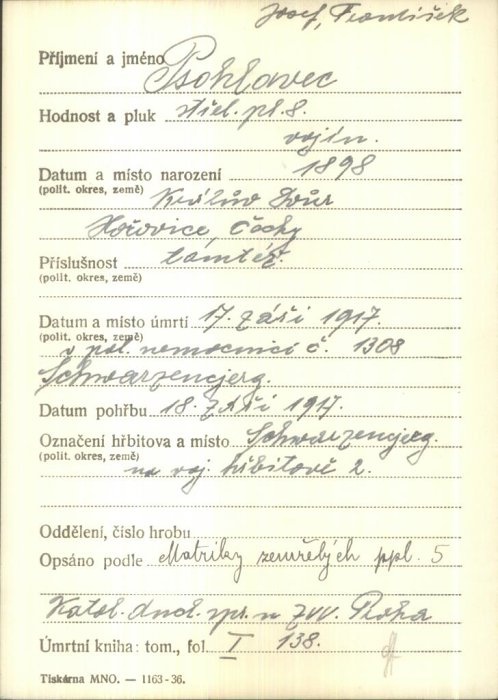 Josef, František
Příjmení a jméno Psohlavec
Hodnost a pluk střel. pl. 8.
vojín.
Datum a místo narození 1898
(polit. okres, země) Králův Dvůr
Hořovice, Čechy
Příslušnost tamtéž.
(polit. okres, země)
Datum a místo úmrtí 17. září 1917.
(polit. okres, země) v pol. nemocnici č. 1308
Schwarzencjerg.
Datum pohřbu 18. září 1917.
Označení hřbitova a místo Schwarzencjerg.
(polit. okres, země) na voj. hřbitově 2.
Oddělení, číslo hrobu
Opsáno podle Matriky zemřelých ppl. 5
Katol. duch. spr. u ZVV. Praha
Úmrtní kniha: tom., fol. I 138.
Tiskárna MNO. — 1163-36.